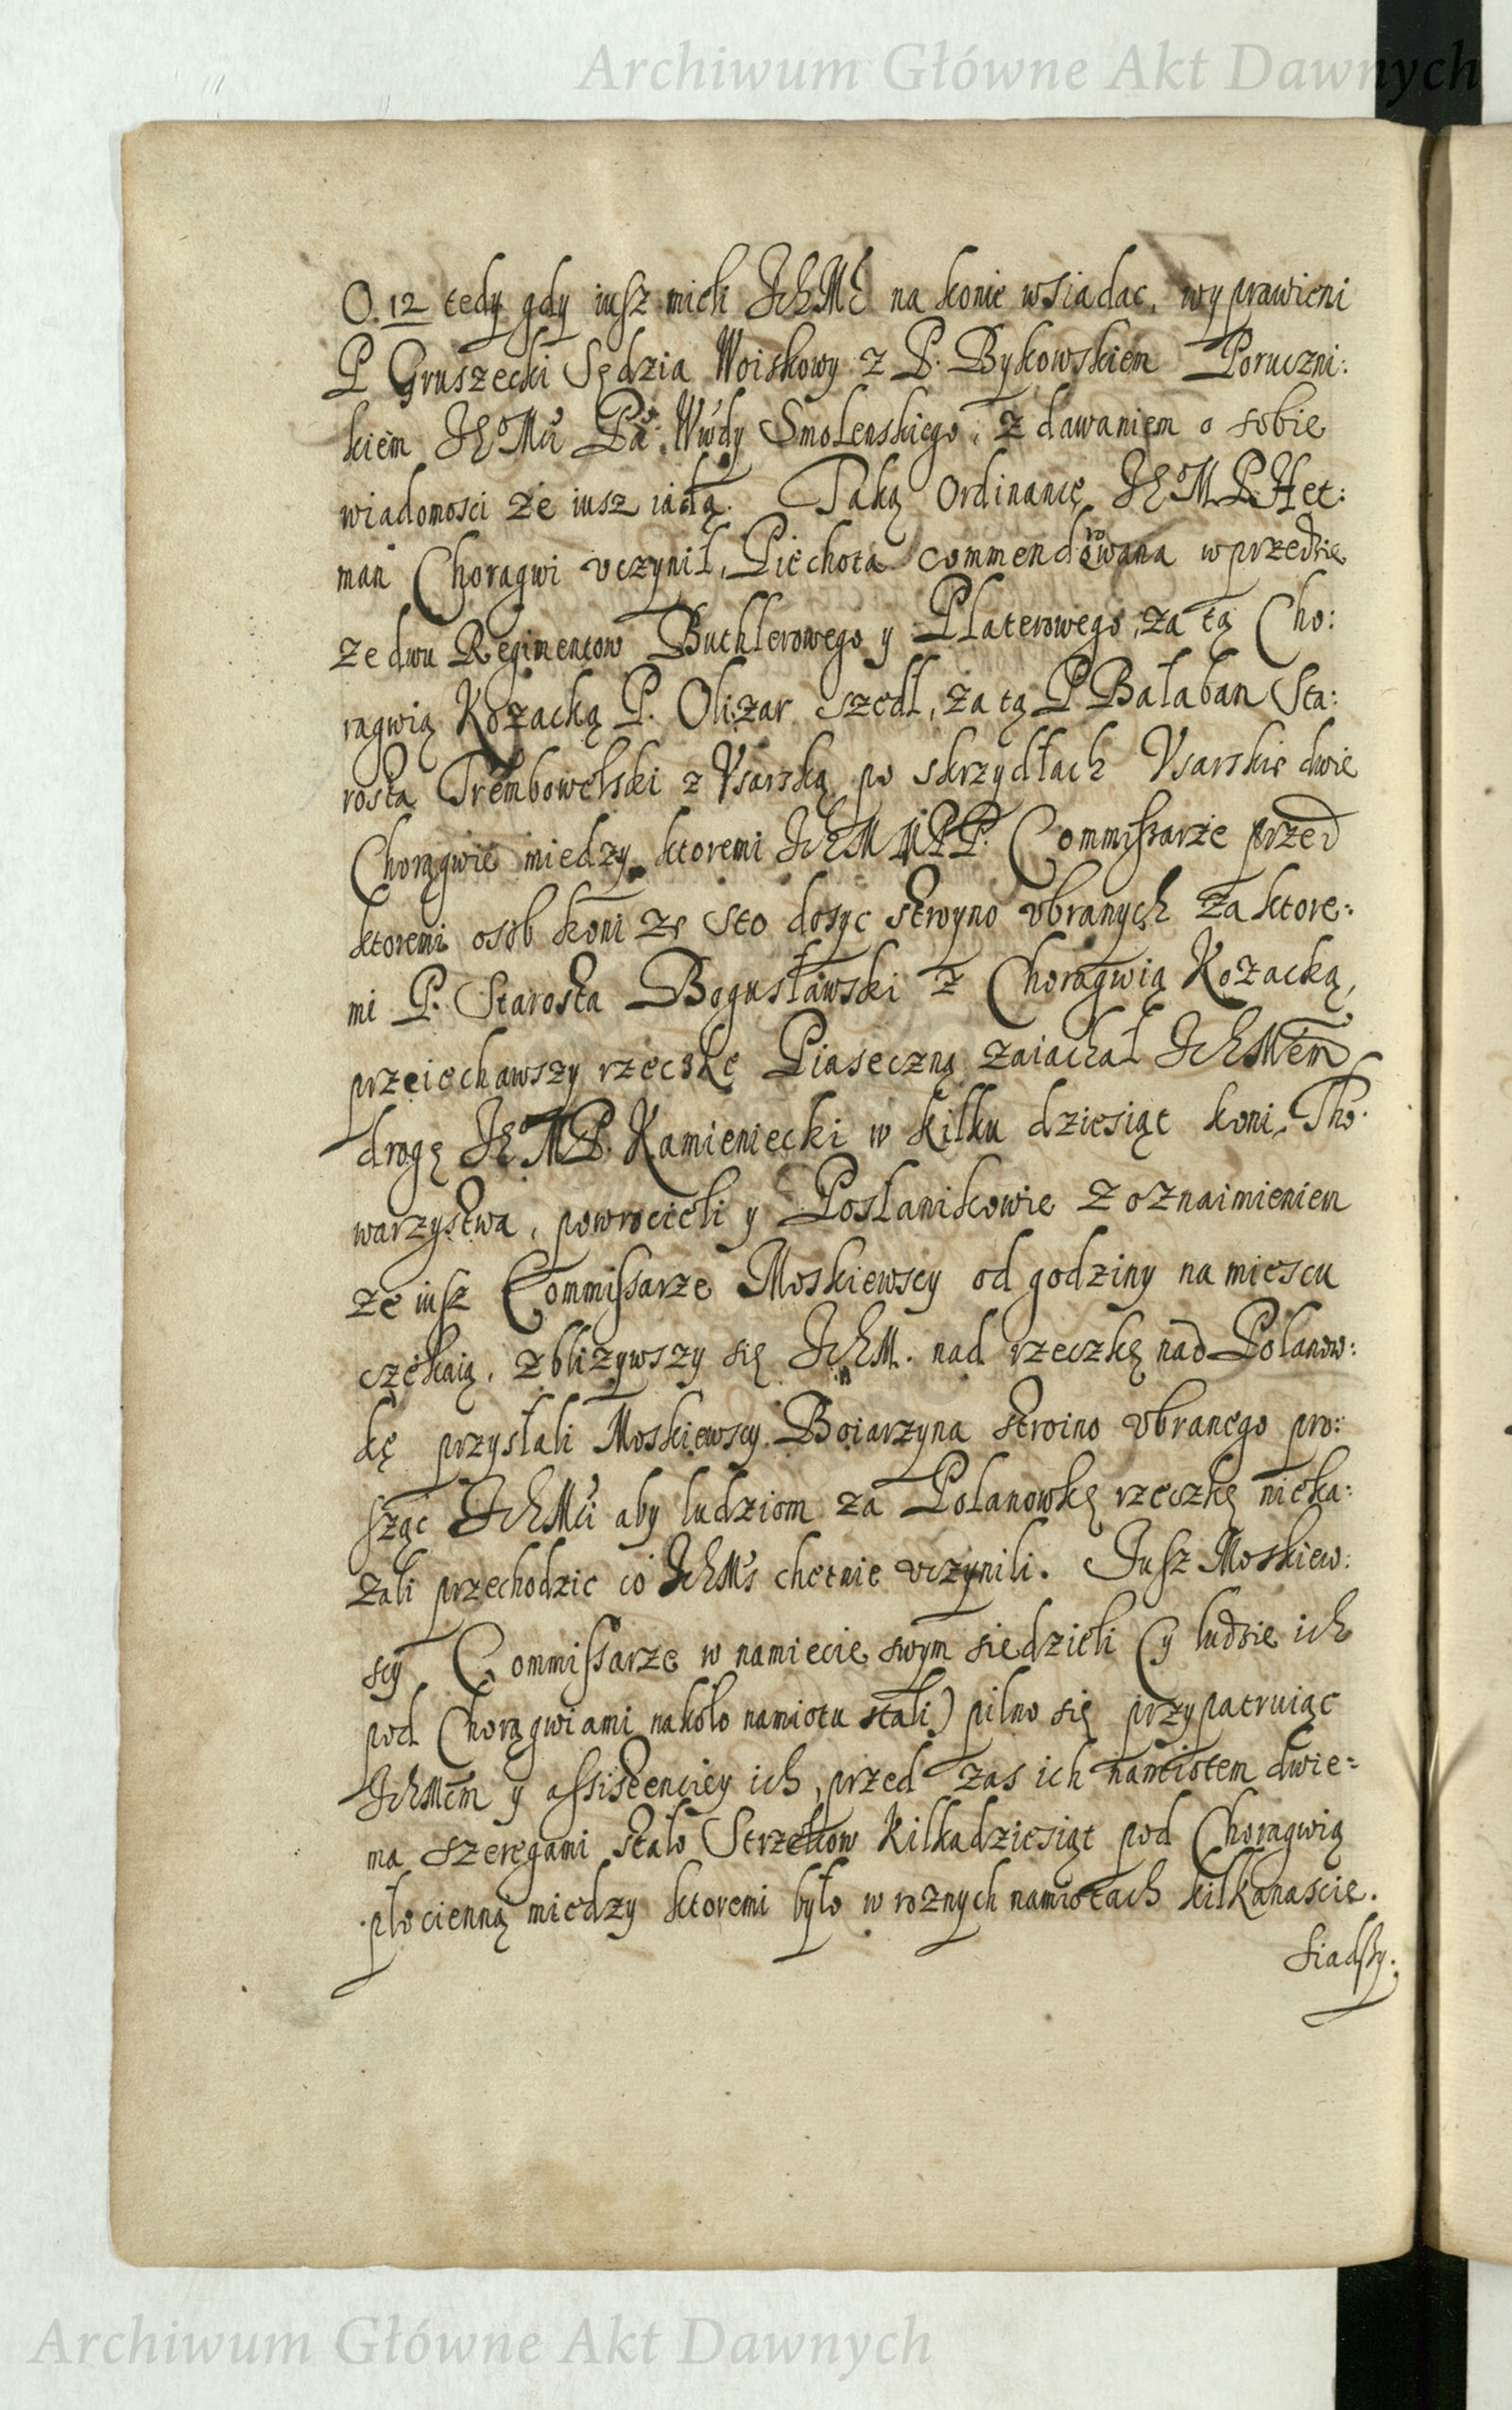 Archiwum Główne Akt Dawnych
O. 12 tedy gdy iusz mieli IchMć na konie wsiadac, wyprawieni
P Gruszecki Sędzia Woiskowy z P. Bykowskiem Poruczni:
kiem JeoMći Pa: Wwdy Smolenskiego, z dawaniem o sobie
wiadomosci że iusz iadą. Taką Ordinancę JeoM P. Het:
man Chorągwi vczynił, Piechota commendérowana wprzedzie
ze dwu Regimentow Buthlerowego y Platerowego, za tą Cho:
rągwią Kozacką P. Olizar szedł, za tą P Bałaban Sta:
rosta Trembowelski z Vsarską po skrzydłach Vsarskie dwie
Chorągwie miedzy ktoremi IchM MPP. Commissarze przed
ktoremi osob koni ze sto dosyc stroyno vbranych za ktore:
mi P. Starosta Bogusławski z Chorągwią Kozacką,
przeiechawszy rzeczkę Piaseczną zaiachał IchMem
drogę JeoM P. Kamieniecki w kilku dziesiąt koni Tho:
warzystwa, powrocieli y Posłanikowie z oznaimieniem
że iusz Commissarze Moskiewscy od godziny na miescu
czekaią, zbliżywszy się IchM. nad rzeczkę nad Polanow:
kę przysłali Moskiewscy Boiarzyna stroino vbranego pro:
sząc IchMći aby ludziom za Polanowkę rzeczkę nieka:
zali przechodzic co IchMć chetnie vczynili. Jusz Moskiew:
scy Commissarze w namiecie swym siedzieli (y ludzie ich
pod Chorągwiami nakoło namiotu stali) pilno się przypatruiąc
IchMcm y assistenciey ich, przed zas ich namiotem dwie=
ma szeregami stało Strzelcow kilkadziesiąt pod Chorągwią
płocienną miedzy ktoremi było w roznych namiotach kilkanascie.
Siadszy.
Archiwum Główne Akt Dawnych